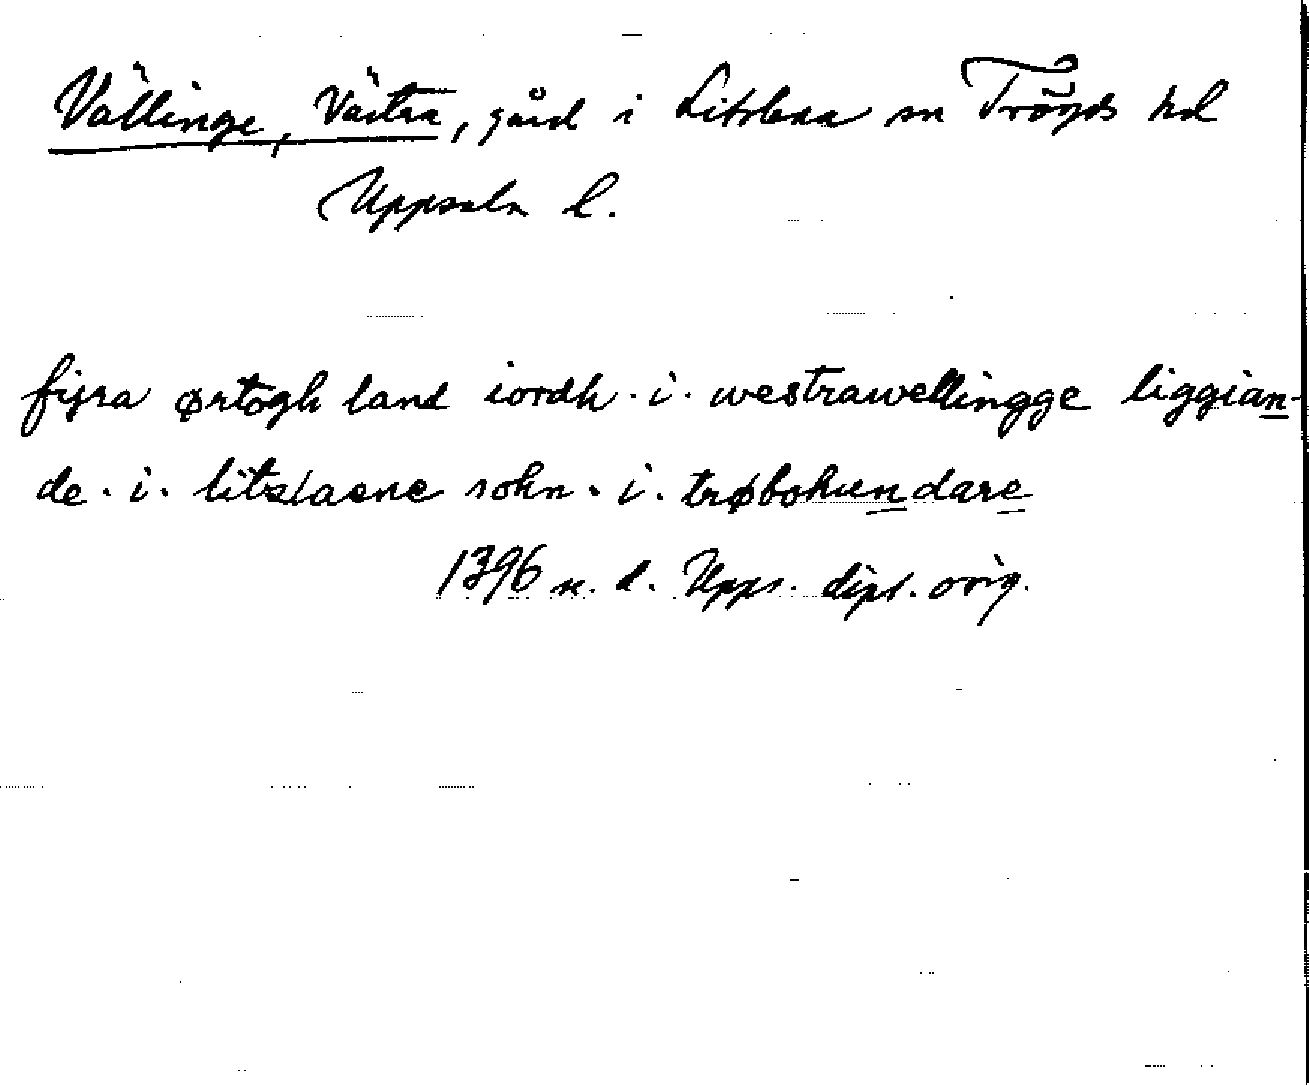 Vällinge, Västra, gård i Litslena sn Trögds hd
Uppsala l.
fijra ørtogh land iordh · i · westrawellingge liggian-
de · i · litzlaene sokn · i · trøbohundare
1396 u. d. Upps. dipl. orig.